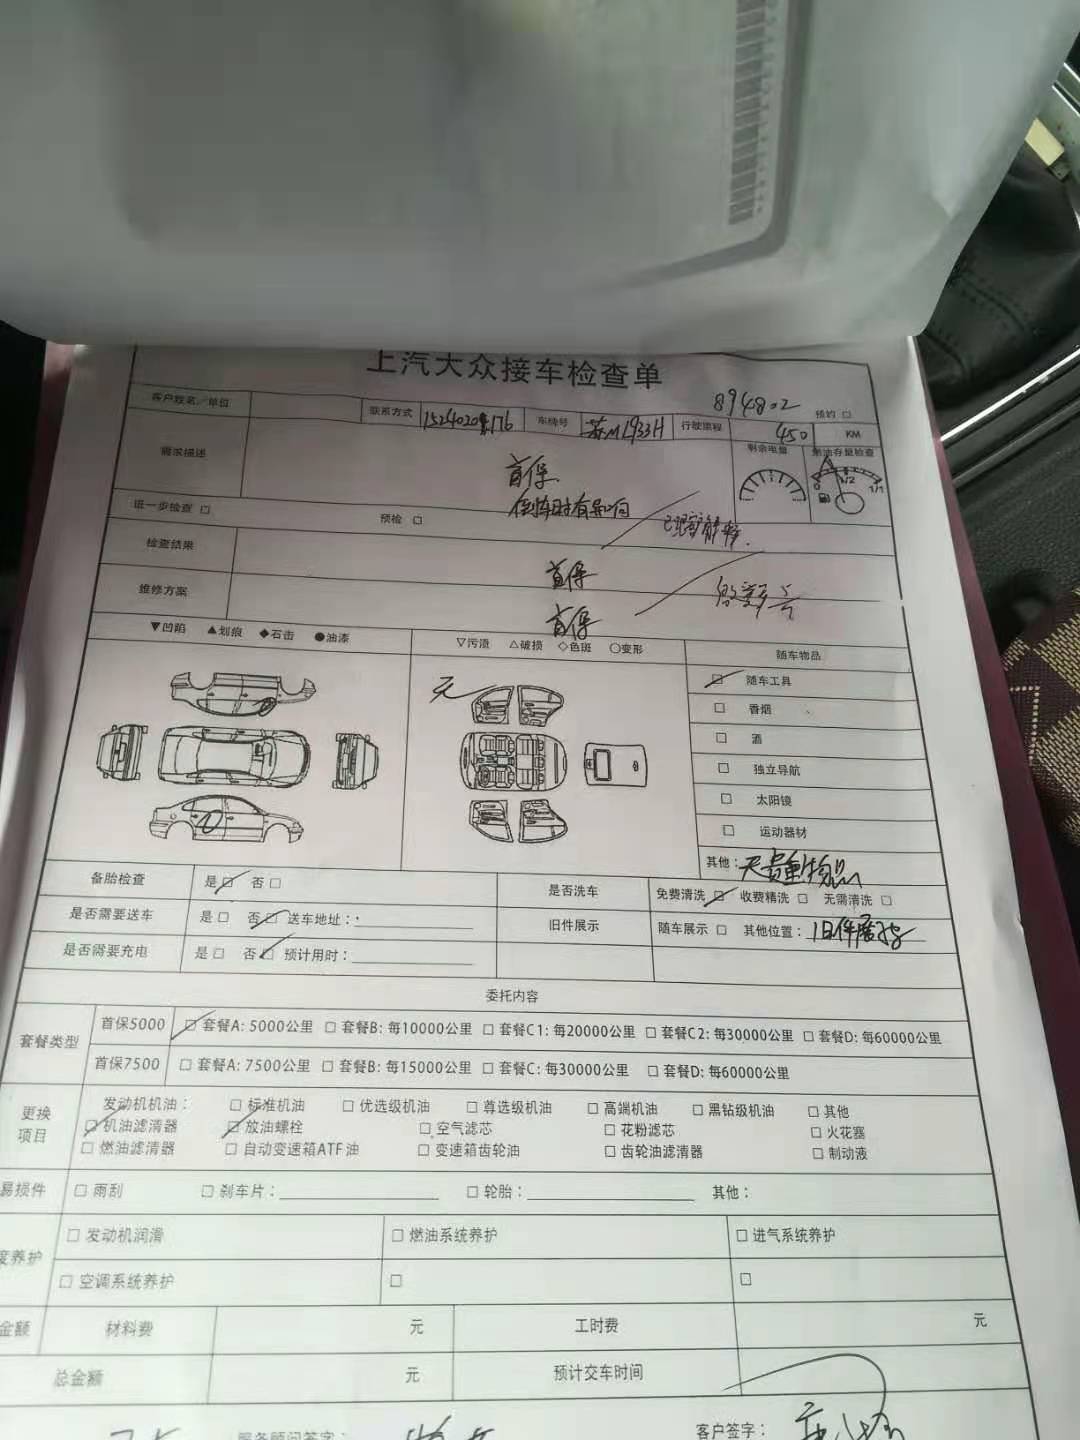 上汽大众接车检查单
预约 □
客户姓名/单位 联系方式 车牌号 苏M1933H 行驶里程 450 KM
需求描述 首保 剩余电量 燃油存量检查
倒车时有异响 0 1/2 1/1
进一步检查 □ 预检 □
检查结果 首保
维修方案 首保
▼凹陷 ▲划痕 ◆石击 ●油漆 ▽污渍 △破损 ◇色斑 ○变形 随车物品
无
□ 随车工具
□ 香烟
□ 酒
□ 独立导航
□ 太阳镜
□ 运动器材
其他： 无贵重物品
备胎检查 是 □ 否 □ 是否洗车 免费清洗 □ 收费精洗 □ 无需清洗 □
是否需要送车 是 □ 否 □ 送车地址： 旧件展示 随车展示 □ 其他位置： 旧件展示
是否需要充电 是 □ 否 □ 预计用时：
委托内容
套餐类型 首保5000 □ 套餐A: 5000公里 □ 套餐B: 每10000公里 □ 套餐C1: 每20000公里 □ 套餐C2: 每30000公里 □ 套餐D: 每60000公里
首保7500 □ 套餐A: 7500公里 □ 套餐B: 每15000公里 □ 套餐C: 每30000公里 □ 套餐D: 每60000公里
更换项目 发动机机油： □ 标准机油 □ 优选级机油 □ 尊选级机油 □ 高端机油 □ 黑钻级机油 □ 其他
□ 机油滤清器 □ 放油螺栓 □ 空气滤芯 □ 花粉滤芯 □ 火花塞
□ 燃油滤清器 □ 自动变速箱ATF油 □ 变速箱齿轮油 □ 齿轮油滤清器 □ 制动液
易损件 □ 雨刮 □ 刹车片： □ 轮胎： 其他：
度养护 □ 发动机润滑 □ 燃油系统养护 □ 进气系统养护
□ 空调系统养护 □ □
金额 材料费 元 工时费 元
总金额 元 预计交车时间
服务顾问签字： 客户签字：